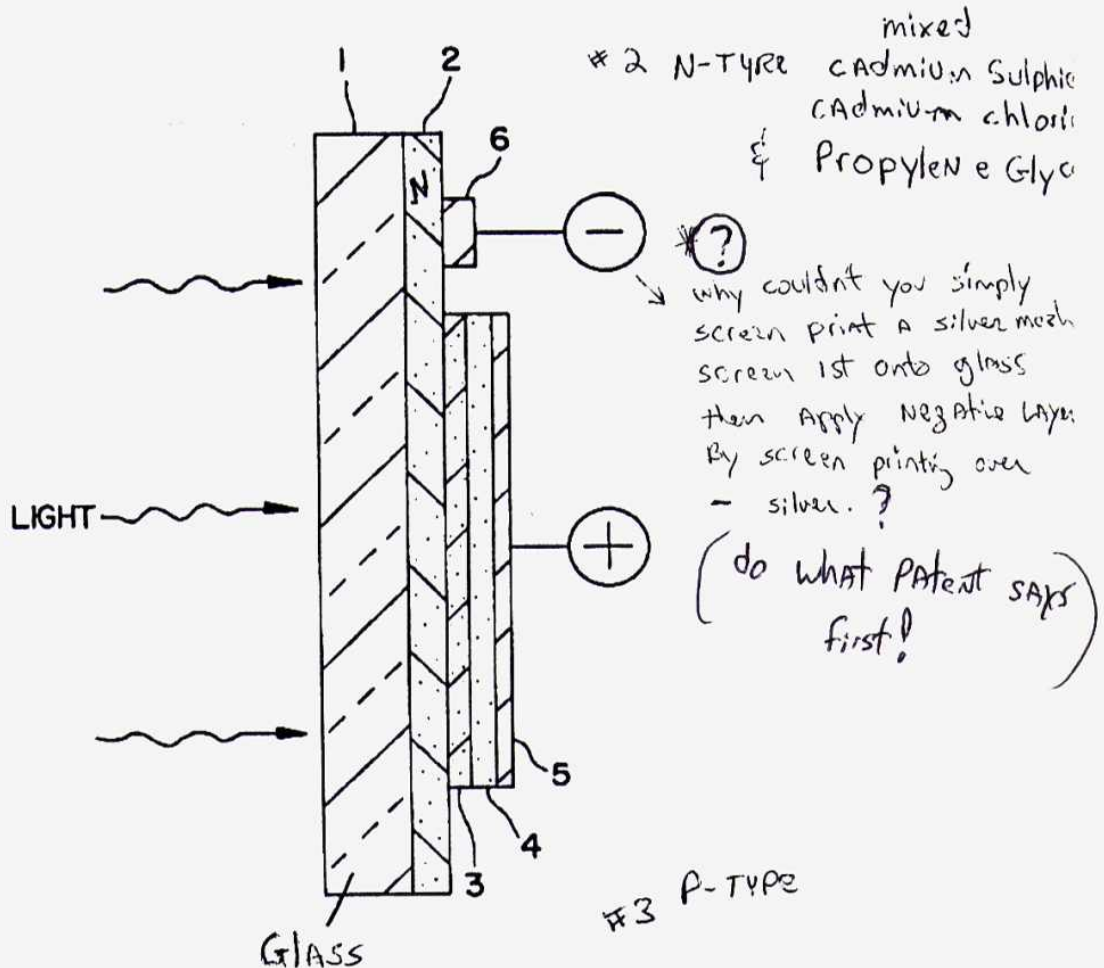 mixed
# 2 N-TYPE CAdmiUm Sulphic
CAdmiUm chlori
& PropyleN e Glyc
1
2
6
N
−
* ?
why couldnt you simply
screen print A silver mesh
screen 1st onto glass
then Apply NegAtive LAye
By screen printing over
- silver. ?
LIGHT
+
(do whAt PAtent SAys
first!)
5
4
3
#3 P-TYPE
GlAss